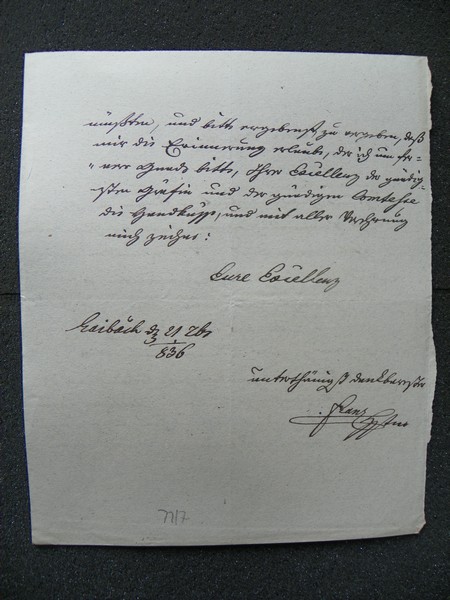 müßten, und bitte ergebenst zu vergeben, daß
mir die Erinnerung erlaube, der ich um fer-
"nere Gnade bitte, Ihrer Excellenz der gnädig-
sten Grafin und der gnädigen Comtesse
die Handküsse, und mit aller Verehrung
mich zeichne:
Eure Excellenz
Laibach d 21
836
unterthänigst dankbarester
Franz
77/7